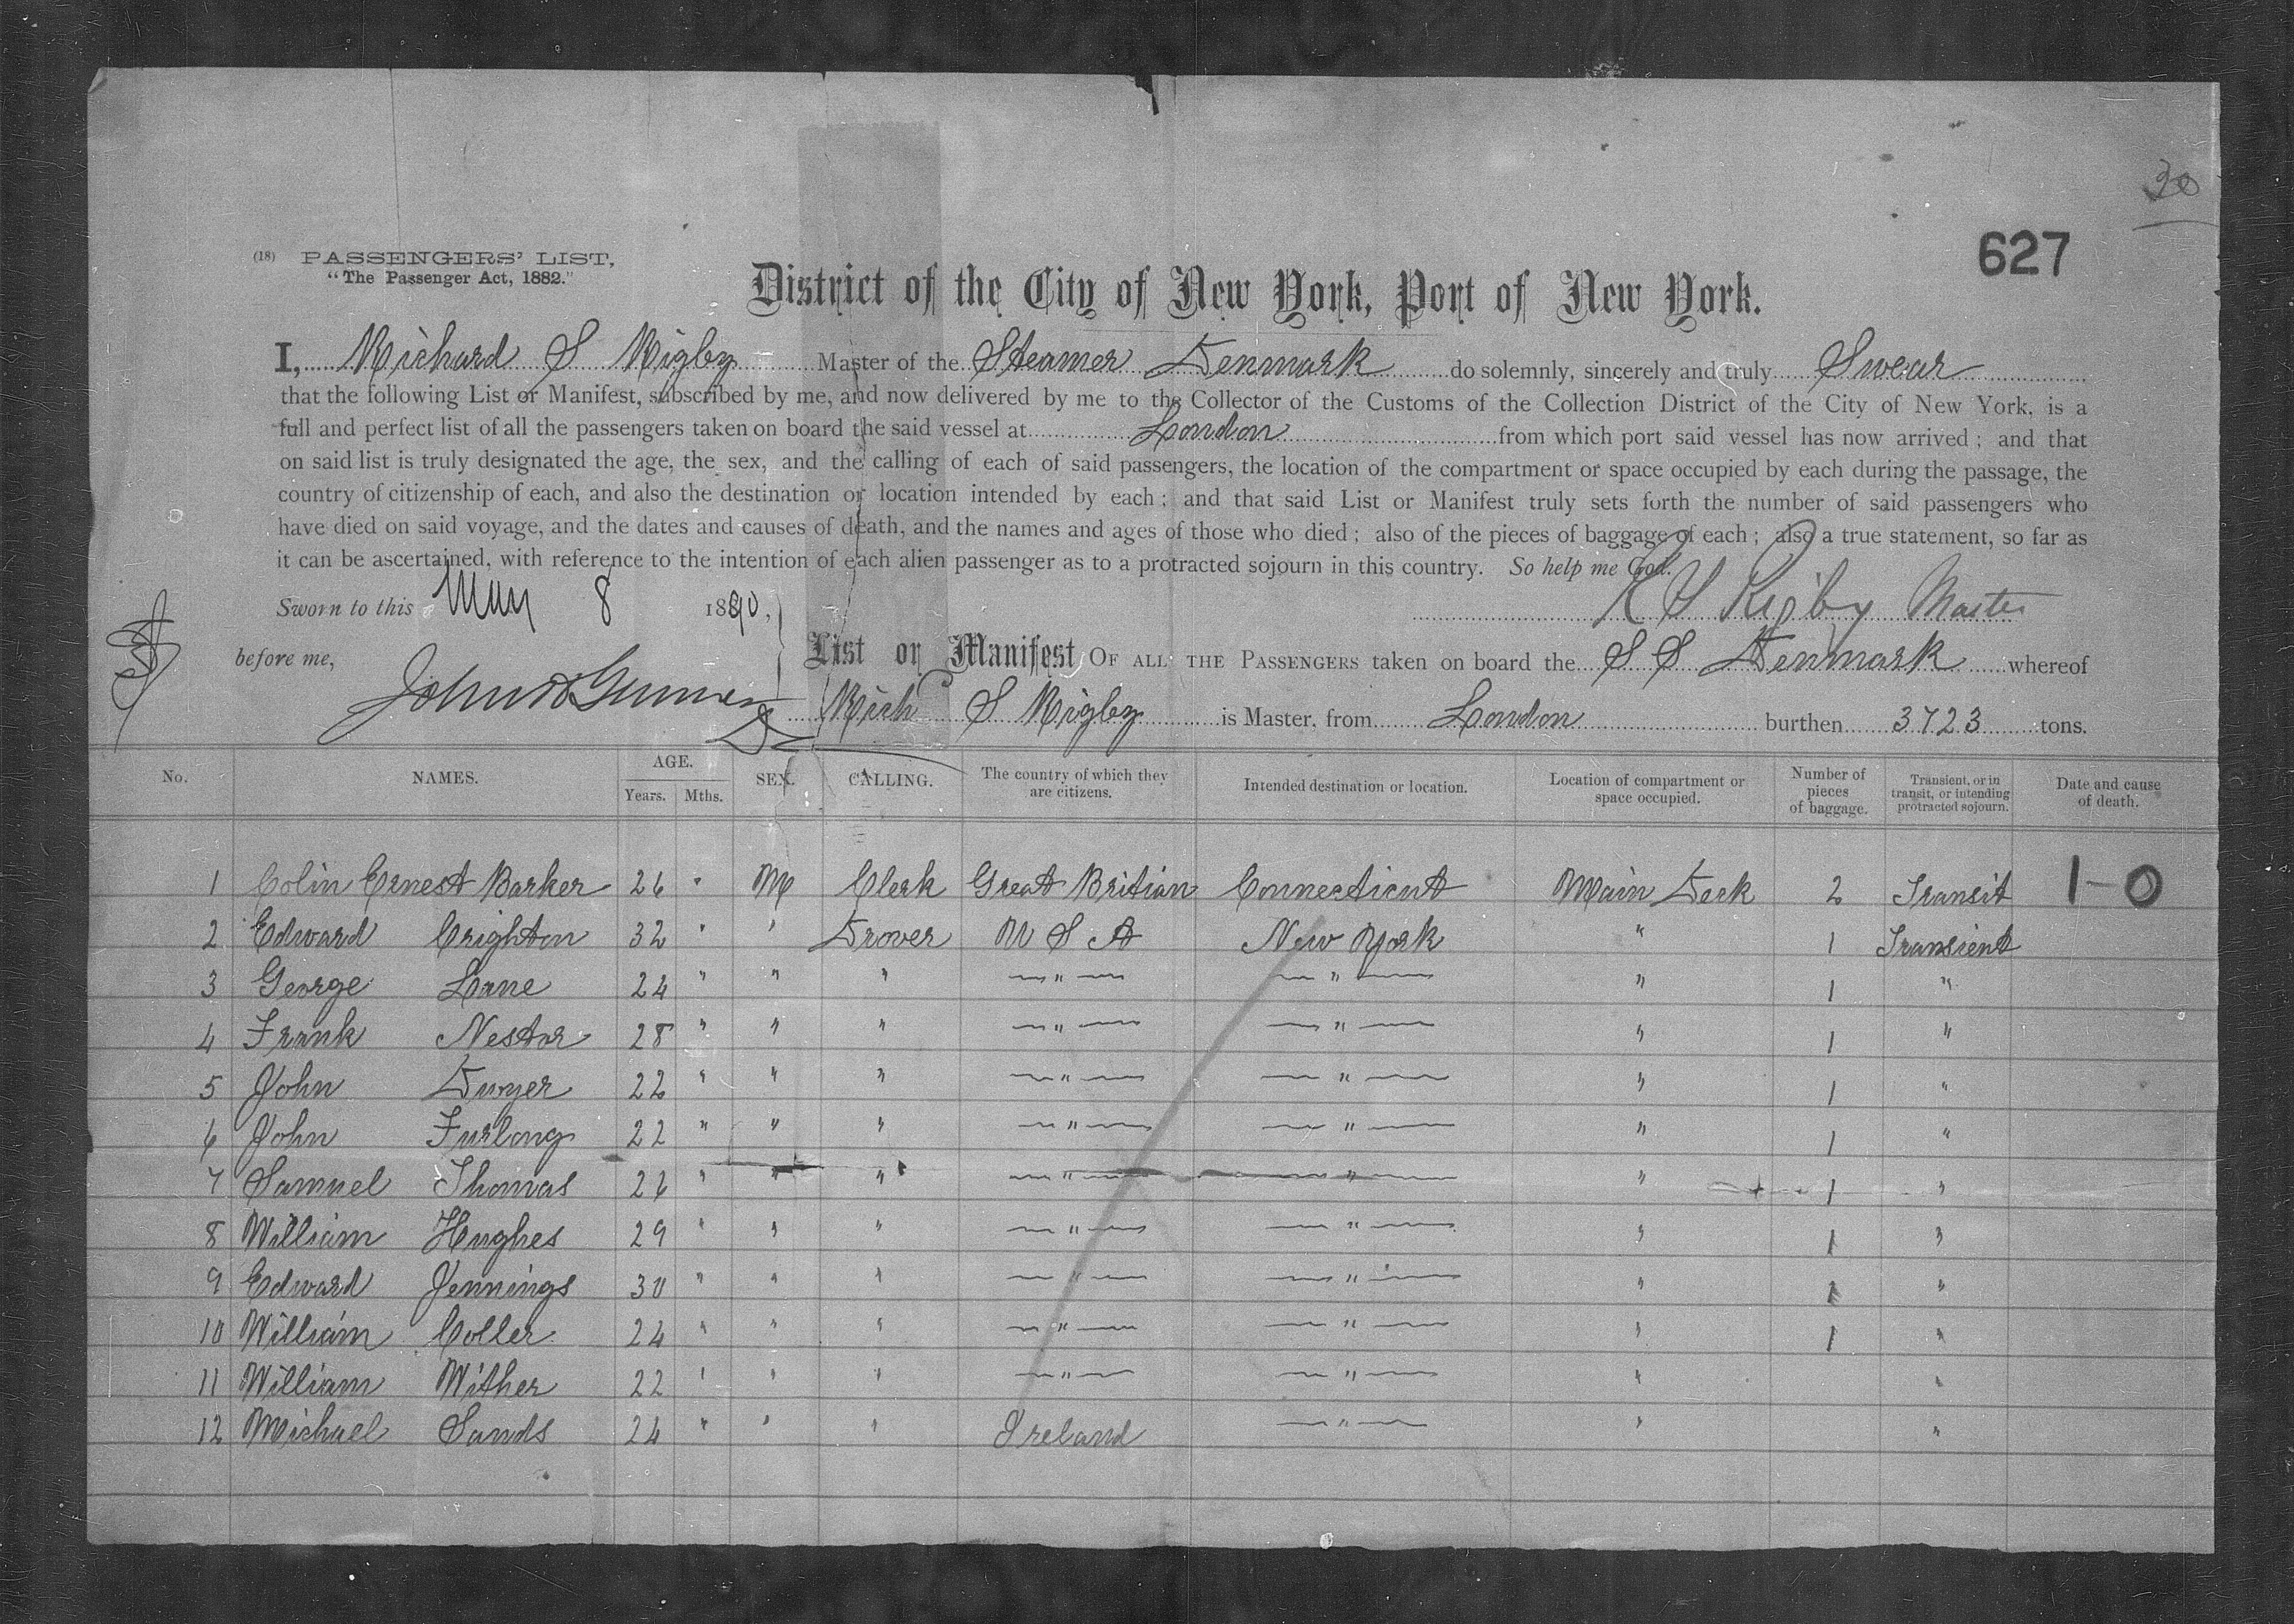 30
627
(18) PASSENGERS' LIST,
"The Passenger Act, 1882."
District of the City of New York, Port of New York.
I, Richard S Rigby Master of the Steamer Denmark do solemnly, sincerely and truly Swear
that the following List or Manifest, subscribed by me, and now delivered by me to the Collector of the Customs of the Collection District of the City of New York, is a
full and perfect list of all the passengers taken on board the said vessel at London from which port said vessel has now arrived; and that
on said list is truly designated the age, the sex, and the calling of each of said passengers, the location of the compartment or space occupied by each during the passage, the
country of citizenship of each, and also the destination or location intended by each; and that said List or Manifest truly sets forth the number of said passengers who
have died on said voyage, and the dates and causes of death, and the names and ages of those who died; also of the pieces of baggage of each; also a true statement, so far as
it can be ascertained, with reference to the intention of each alien passenger as to a protracted sojourn in this country. So help me God.
Sworn to this May 8 1890, R S Rigby Master
before me, List or Manifest OF ALL THE PASSENGERS taken on board the S S Denmark whereof
Rich S Rigby is Master, from London burthen 3723 tons.
No. NAMES. AGE. Years. Mths. SEX. CALLING. The country of which they are citizens. Intended destination or location. Location of compartment or space occupied. Number of pieces of baggage. Transient, or in transit, or intending protracted sojourn. Date and cause of death.
1 Colin Ernest Barker 26 " M Clerk Great Britian Connecticut Main Deck 2 Transit 1-0
2 Edward Crighton 32 " " Drover U S A New York " 1 Transient
3 George Lane 24 " " " — " — — " — " 1 "
4 Frank Nestor 28 " " " — " — — " — " 1 "
5 John Dwyer 22 " " " — " — — " — " 1 "
6 John Furlong 22 " " " — " — — " — " 1 "
7 Samuel Thomas 26 " " " — " — — " — " 1 "
8 William Hughes 29 " " " — " — — " — " 1 "
9 Edward Jennings 30 " " " — " — — " — " 1 "
10 William Coller 24 " " " — " — — " — " 1 "
11 William Wither 22 " " " — " — — " — " "
12 Michael Sands 24 " " " Ireland — " — " "